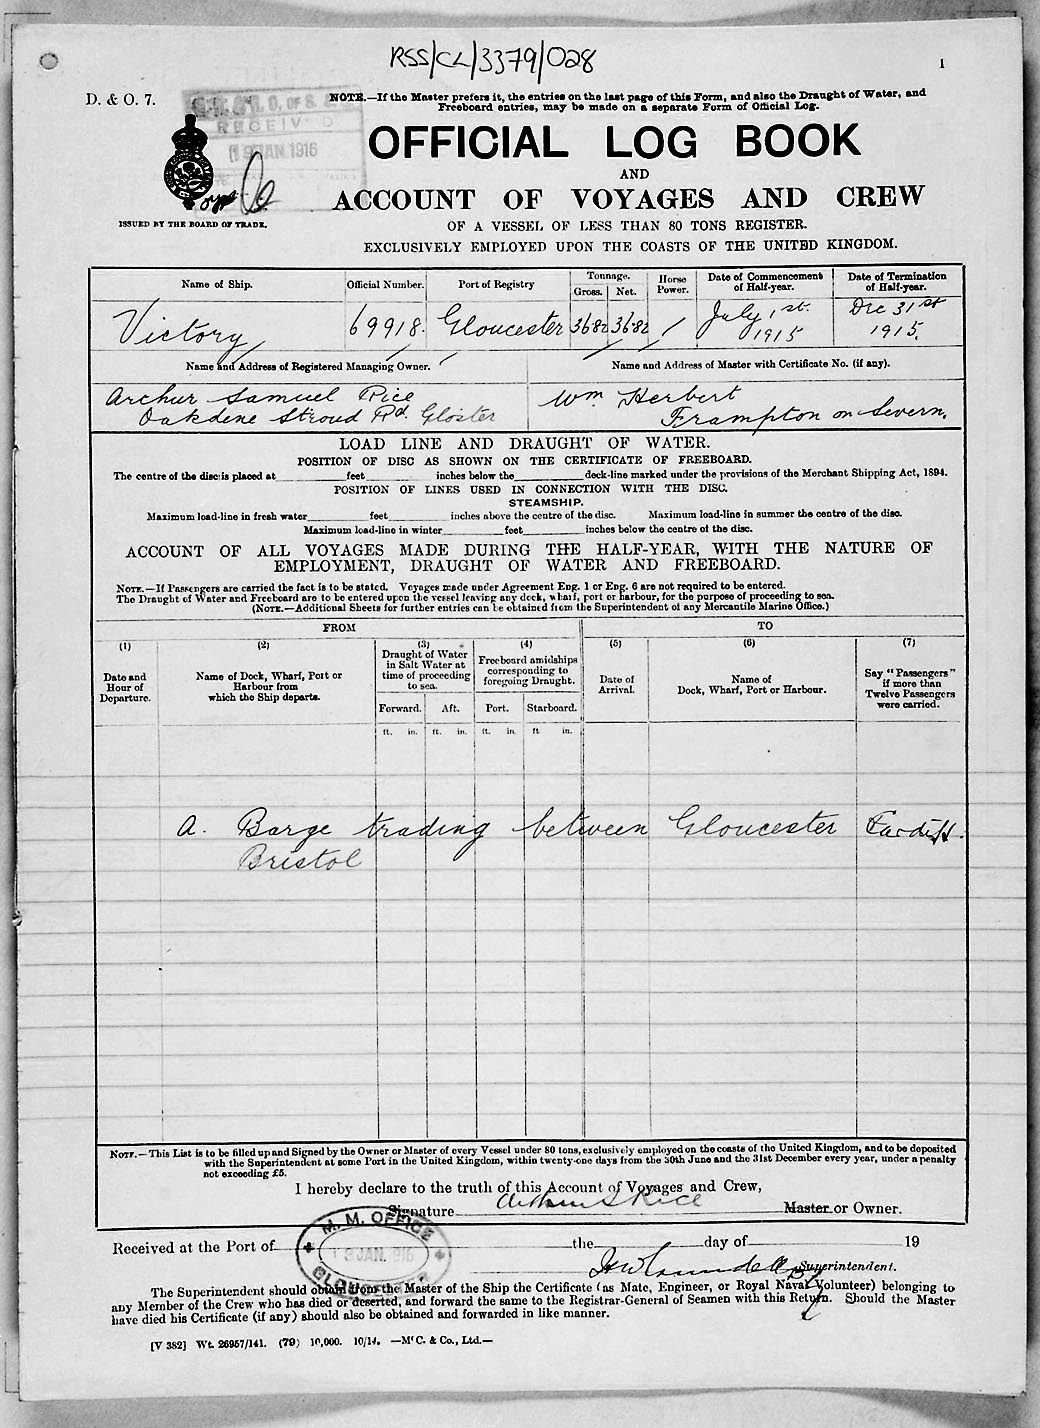 RSS/CL/3379/028
1
D. & O. 7.
RECEIVED
19 JAN. 1916
NOTE.—If the Master prefers it, the entries on the last page of this Form, and also the Draught of Water, and
Freeboard entries, may be made on a separate Form of Official Log.
OFFICIAL LOG BOOK
AND
ACCOUNT OF VOYAGES AND CREW
OF A VESSEL OF LESS THAN 80 TONS REGISTER.
EXCLUSIVELY EMPLOYED UPON THE COASTS OF THE UNITED KINGDOM.
ISSUED BY THE BOARD OF TRADE.
Name of Ship. Official Number. Port of Registry Tonnage. Gross. Net. Horse Power. Date of Commencement of Half-year. Date of Termination of Half-year.
Victory 69918. Gloucester 36.82 36.82 / July 1st. 1915 Dec 31st 1915.
Name and Address of Registered Managing Owner. Name and Address of Master with Certificate No. (if any).
Arthur Samuel Rice Wm Herbert
Oakdene Stroud Rd. Gloster Frampton on Severn.
LOAD LINE AND DRAUGHT OF WATER.
POSITION OF DISC AS SHOWN ON THE CERTIFICATE OF FREEBOARD.
The centre of the disc is placed at feet inches below the deck-line marked under the provisions of the Merchant Shipping Act, 1894.
POSITION OF LINES USED IN CONNECTION WITH THE DISC.
STEAMSHIP.
Maximum load-line in fresh water feet inches above the centre of the disc. Maximum load-line in summer the centre of the disc.
Maximum load-line in winter feet inches below the centre of the disc.
ACCOUNT OF ALL VOYAGES MADE DURING THE HALF-YEAR, WITH THE NATURE OF
EMPLOYMENT, DRAUGHT OF WATER AND FREEBOARD.
NOTE.—If Passengers are carried the fact is to be stated. Voyages made under Agreement Eng. 1 or Eng. 6 are not required to be entered.
The Draught of Water and Freeboard are to be entered upon the vessel leaving any dock, wharf, port or harbour, for the purpose of proceeding to sea.
(NOTE.—Additional Sheets for further entries can be obtained from the Superintendent of any Mercantile Marine Office.)
FROM TO
(1) (2) (3) (4) (5) (6) (7)
Date and Hour of Departure. Name of Dock, Wharf, Port or Harbour from which the Ship departs. Draught of Water in Salt Water at time of proceeding to sea. Freeboard amidships corresponding to foregoing Draught. Date of Arrival. Name of Dock, Wharf, Port or Harbour. Say "Passengers" if more than Twelve Passengers were carried.
Forward. Aft. Port. Starboard.
ft. in. ft. in. ft. in. ft in.
A. Barge trading between Gloucester Cardiff.
Bristol
NOTE.—This List is to be filled up and Signed by the Owner or Master of every Vessel under 80 tons, exclusively employed on the coasts of the United Kingdom, and to be deposited
with the Superintendent at some Port in the United Kingdom, within twenty-one days from the 30th June and the 31st December every year, under a penalty
not exceeding £5.
I hereby declare to the truth of this Account of Voyages and Crew,
Signature Arthur S Rice Master or Owner.
M. M. OFFICE
JAN. 1916
Received at the Port of the day of 19
Superintendent.
The Superintendent should obtain from the Master of the Ship the Certificate (as Mate, Engineer, or Royal Naval Volunteer) belonging to
any Member of the Crew who has died or deserted, and forward the same to the Registrar-General of Seamen with this Return. Should the Master
have died his Certificate (if any) should also be obtained and forwarded in like manner.
[V 382] Wt. 26957/141. (79) 10,000. 10/14. —McC. & Co., Ltd.—